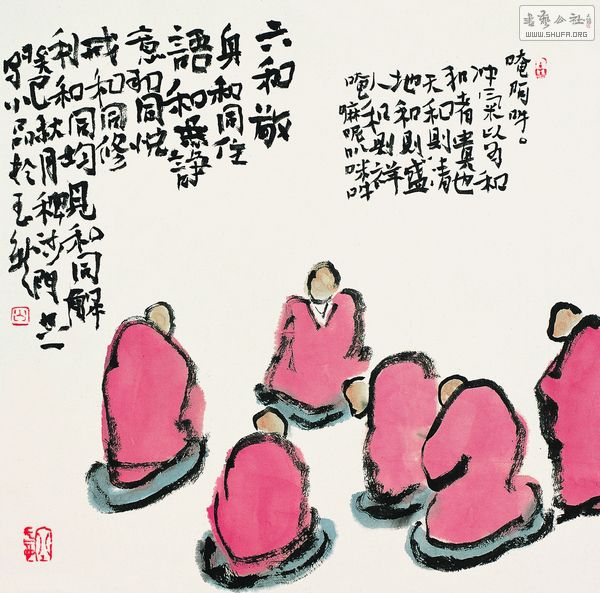 書藝公社
WWW.SHUFA.ORG
唵阿吽。
冲气以为和
和者貴也
天和則清
地和則盛
人和則祥
唵嘛呢叭咪吽
六和敬
身和同住
語和無諍
意和同悦
戒和同修
利和同均見和同解
癸巳秋月沙門
小品於